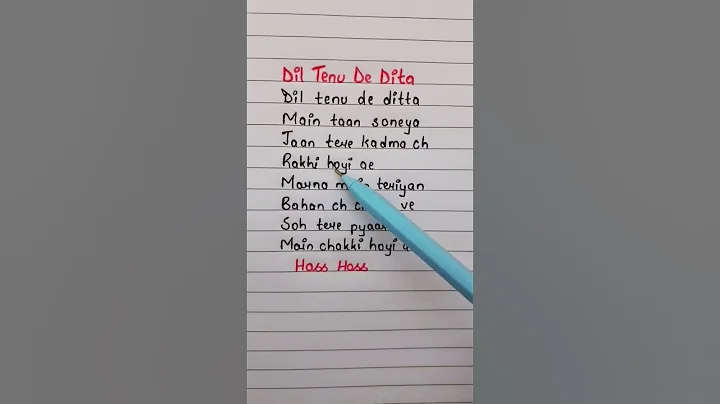 Dil Tenu De Dita
Dil tenu de ditta
Main taan soneya
Jaan tere kadma ch
Rakhi hoyi ae
Marna main teriyan
Bahan ch ve
Soh tere
Main chakki hoyi
Hass Hass